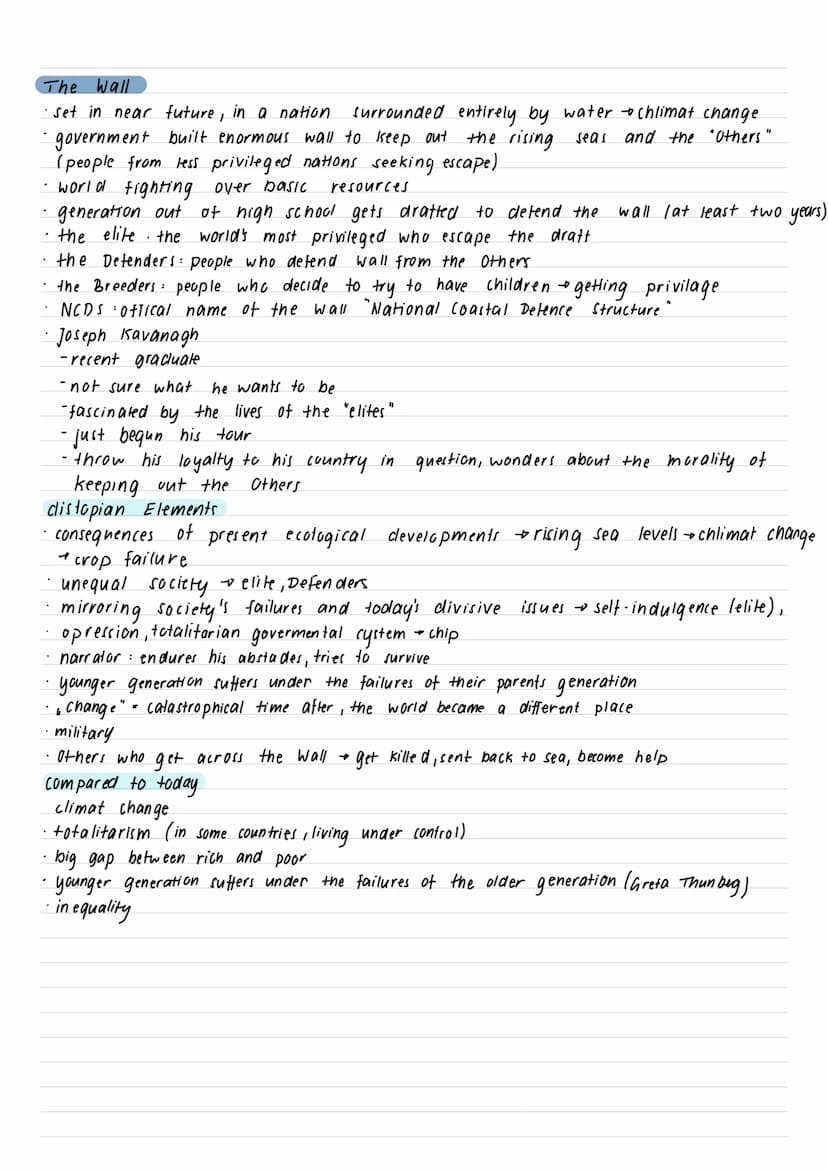 The Wall
· set in near future, in a nation surrounded entirely by water → chlimat change
· government built enormous wall to keep out the rising seas and the "Others"
(people from less privileged nations seeking escape)
· world fighting over basic resources
· generation out of high school gets drafted to defend the wall (at least two years)
· the elite · the world's most privileged who escape the draft
· the Defenders: people who defend wall from the Others
· the Breeders: people who decide to try to have children → getting privilage
· NCDS : offical name of the Wall "National Coastal Defence Structure"
· Joseph Kavanagh
- recent graduate
- not sure what he wants to be
- fascinated by the lives of the "elites"
- just begun his tour
- throw his loyalty to his country in question, wonders about the morality of
keeping out the Others
distopian Elements
· consequences of present ecological developments → rising sea levels → chlimat change
→ crop failure
· unequal society → elite, Defenders
· mirroring society's failures and today's divisive issues → self-indulgence (elite),
· opression, totalitorian govermental system → chip
· narrator : endures his abstacles, tries to survive
· younger generation suffers under the failures of their parents generation
· „change" = catastrophical time after, the world became a different place
· military
· Others who get across the Wall → get killed, sent back to sea, become help
compared to today
climat change
· totalitarism (in some countries, living under control)
· big gap between rich and poor
· younger generation suffers under the failures of the older generation (Greta Thunbeg)
· inequality